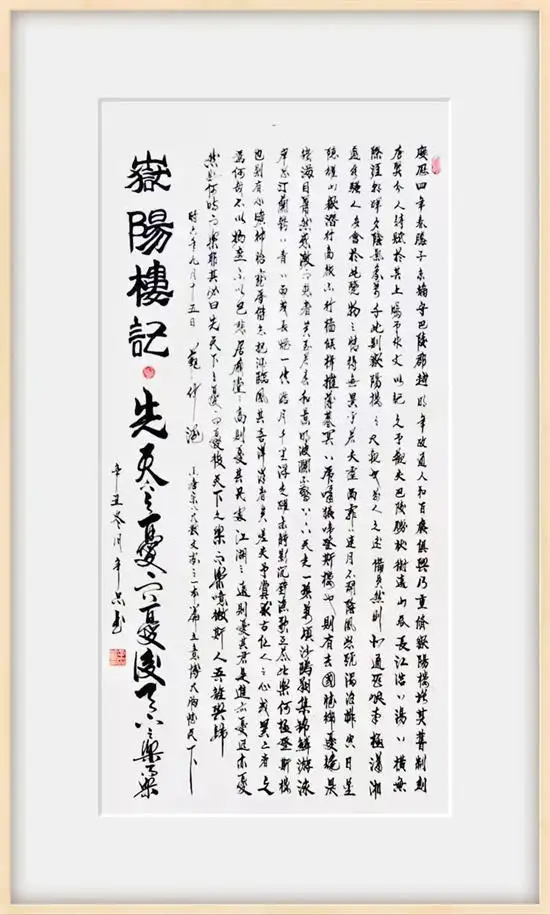 慶曆四年春滕子京謫守巴陵郡越明年政通人和百廢俱興乃重修嶽陽樓增其舊制刻
唐賢今人詩賦於其上屬予作文以記之予觀夫巴陵勝狀銜遠山吞長江浩〃湯〃橫無
際涯朝暉夕陰氣象萬千此則嶽陽樓之大觀也前人之述備矣然則北通巫峽南極瀟湘
遷客騷人多會於此覽物之情得無異乎若夫霪雨霏〃連月不開陰風怒號濁浪排空日星
隱耀山嶽潛行商旅不行檣傾楫摧薄暮冥〃虎嘯猿啼登斯樓也則有去國懷鄉憂讒畏
譏滿目蕭然感激而悲者矣至若春和景明波瀾不驚上下天光一碧萬頃沙鷗翔集錦鱗游泳
岸芷汀蘭郁〃青〃而或長煙一空皓月千里浮光躍金靜影沉璧漁歌互答此樂何極登斯樓
也則有心曠神怡寵辱偕忘把酒臨風其喜洋洋者矣嗟夫予嘗求古仁人之心或異二者之
為何哉不以物喜不以己悲居廟堂之高則憂其民處江湖之遠則憂其君是進亦憂退亦憂
然則何時而樂耶其必曰先天下之憂而憂後天下之樂而樂噫微斯人吾誰與歸
時六年九月十五日 范仲淹 之一本篇立意博大胸懷天下
嶽陽樓記 先天下之憂而憂後天下之樂而樂
辛丑冬月